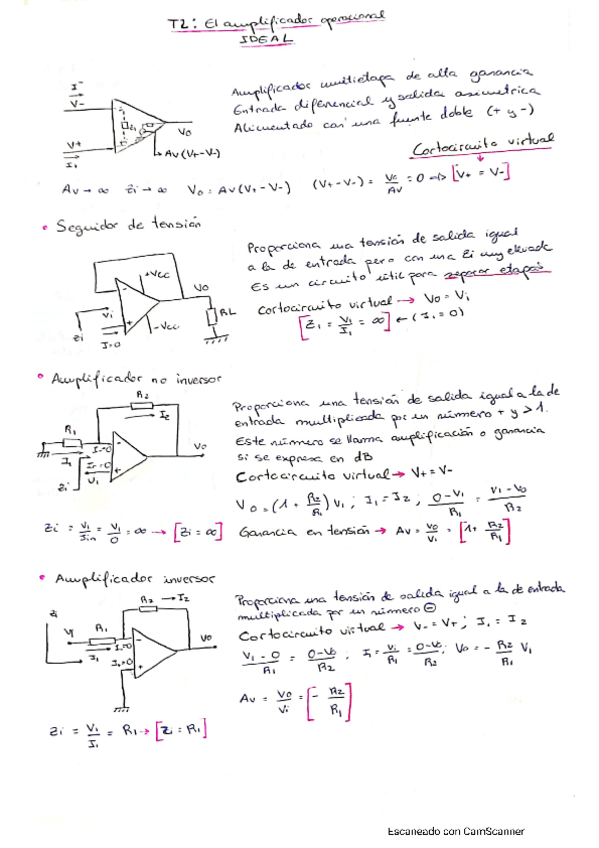 T2: El amplificador operacional
IDEAL
I-
V-
V+
I+
Zi
Vo
Av(V+-V-)
Amplificador multietapa de alta ganancia
Entrada diferencial y salida asimetrica
Alimentado con una fuente doble (+ y -)
Cortocircuito virtual
Av → ∞ Zi → ∞ Vo = Av(V+ - V-) (V+ - V-) = Vo/Av = 0 → [V+ = V-]
• Seguidor de tensión
+Vcc
Vo
RL
Vi
-Vcc
Zi
I=0
Proporciona una tensión de salida igual
a la de entrada pero con una Zi muy elevada
Es un circuito útil para separar etapas
Cortocircuito virtual → Vo = Vi
[Zi = Vi/Ii = ∞] ← (Ii = 0)
• Amplificador no inversor
R2
I2
R1
I-=0
Vo
I1
I+=0
Vi
Zi
Proporciona una tensión de salida igual a la de
entrada multiplicada por un número + y > 1.
Este número se llama amplificación o ganancia
si se expresa en dB
Cortocircuito virtual → V+ = V-
Vo = (1 + R2/R1) Vi ; I1 = I2 ; 0-Vi/R1 = Vi-Vo/R2
Zi = Vi/Iin = Vi/0 = ∞ → [Zi = ∞] Ganancia en tensión → Av = Vo/Vi = [1 + R2/R1]
• Amplificador inversor
R2 → I2
Zi
Vi
R1
I-=0
Vo
I1
I+=0
Proporciona una tensión de salida igual a la de entrada
multiplicada por un número ⊖
Cortocircuito virtual → V- = V+ ; I1 = I2
Vi-0/R1 = 0-Vo/R2 ; I1 = Vi/R1 = 0-Vo/R2 ; Vo = - R2/R1 Vi
Av = Vo/Vi = [- R2/R1]
Zi = Vi/I1 = R1 → [Zi = R1]
Escaneado con CamScanner